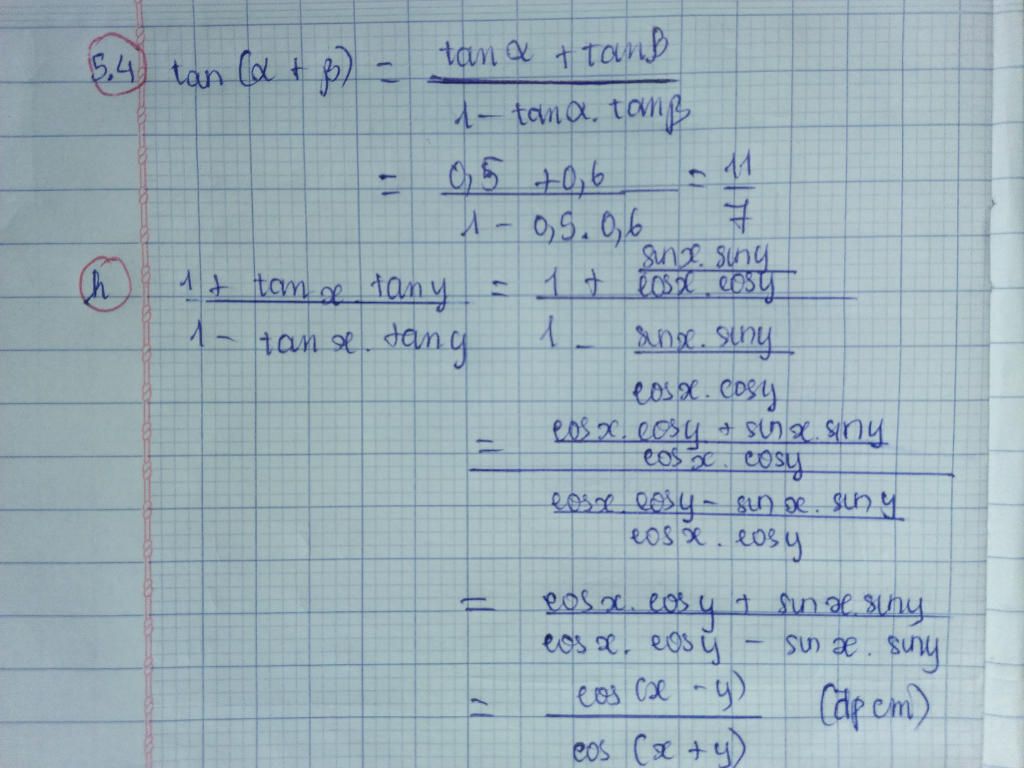 5.4 tan (α + β) = (tanα + tanβ) / (1 - tanα. tanβ)
= (0,5 + 0,6) / (1 - 0,5. 0,6) = 11/7
h (1 + tan x tan y) / (1 - tan x. tan y) = (1 + (sinx. siny) / (cosx. cosy)) / (1 - (sinx. siny) / (cosx. cosy))
= ((cosx. cosy + sinx. siny) / (cosx. cosy)) / ((cosx. cosy - sinx. siny) / (cosx. cosy))
= (cosx. cosy + sinx. siny) / (cosx. cosy - sinx. siny)
= cos (x - y) / cos (x + y) (đpcm)